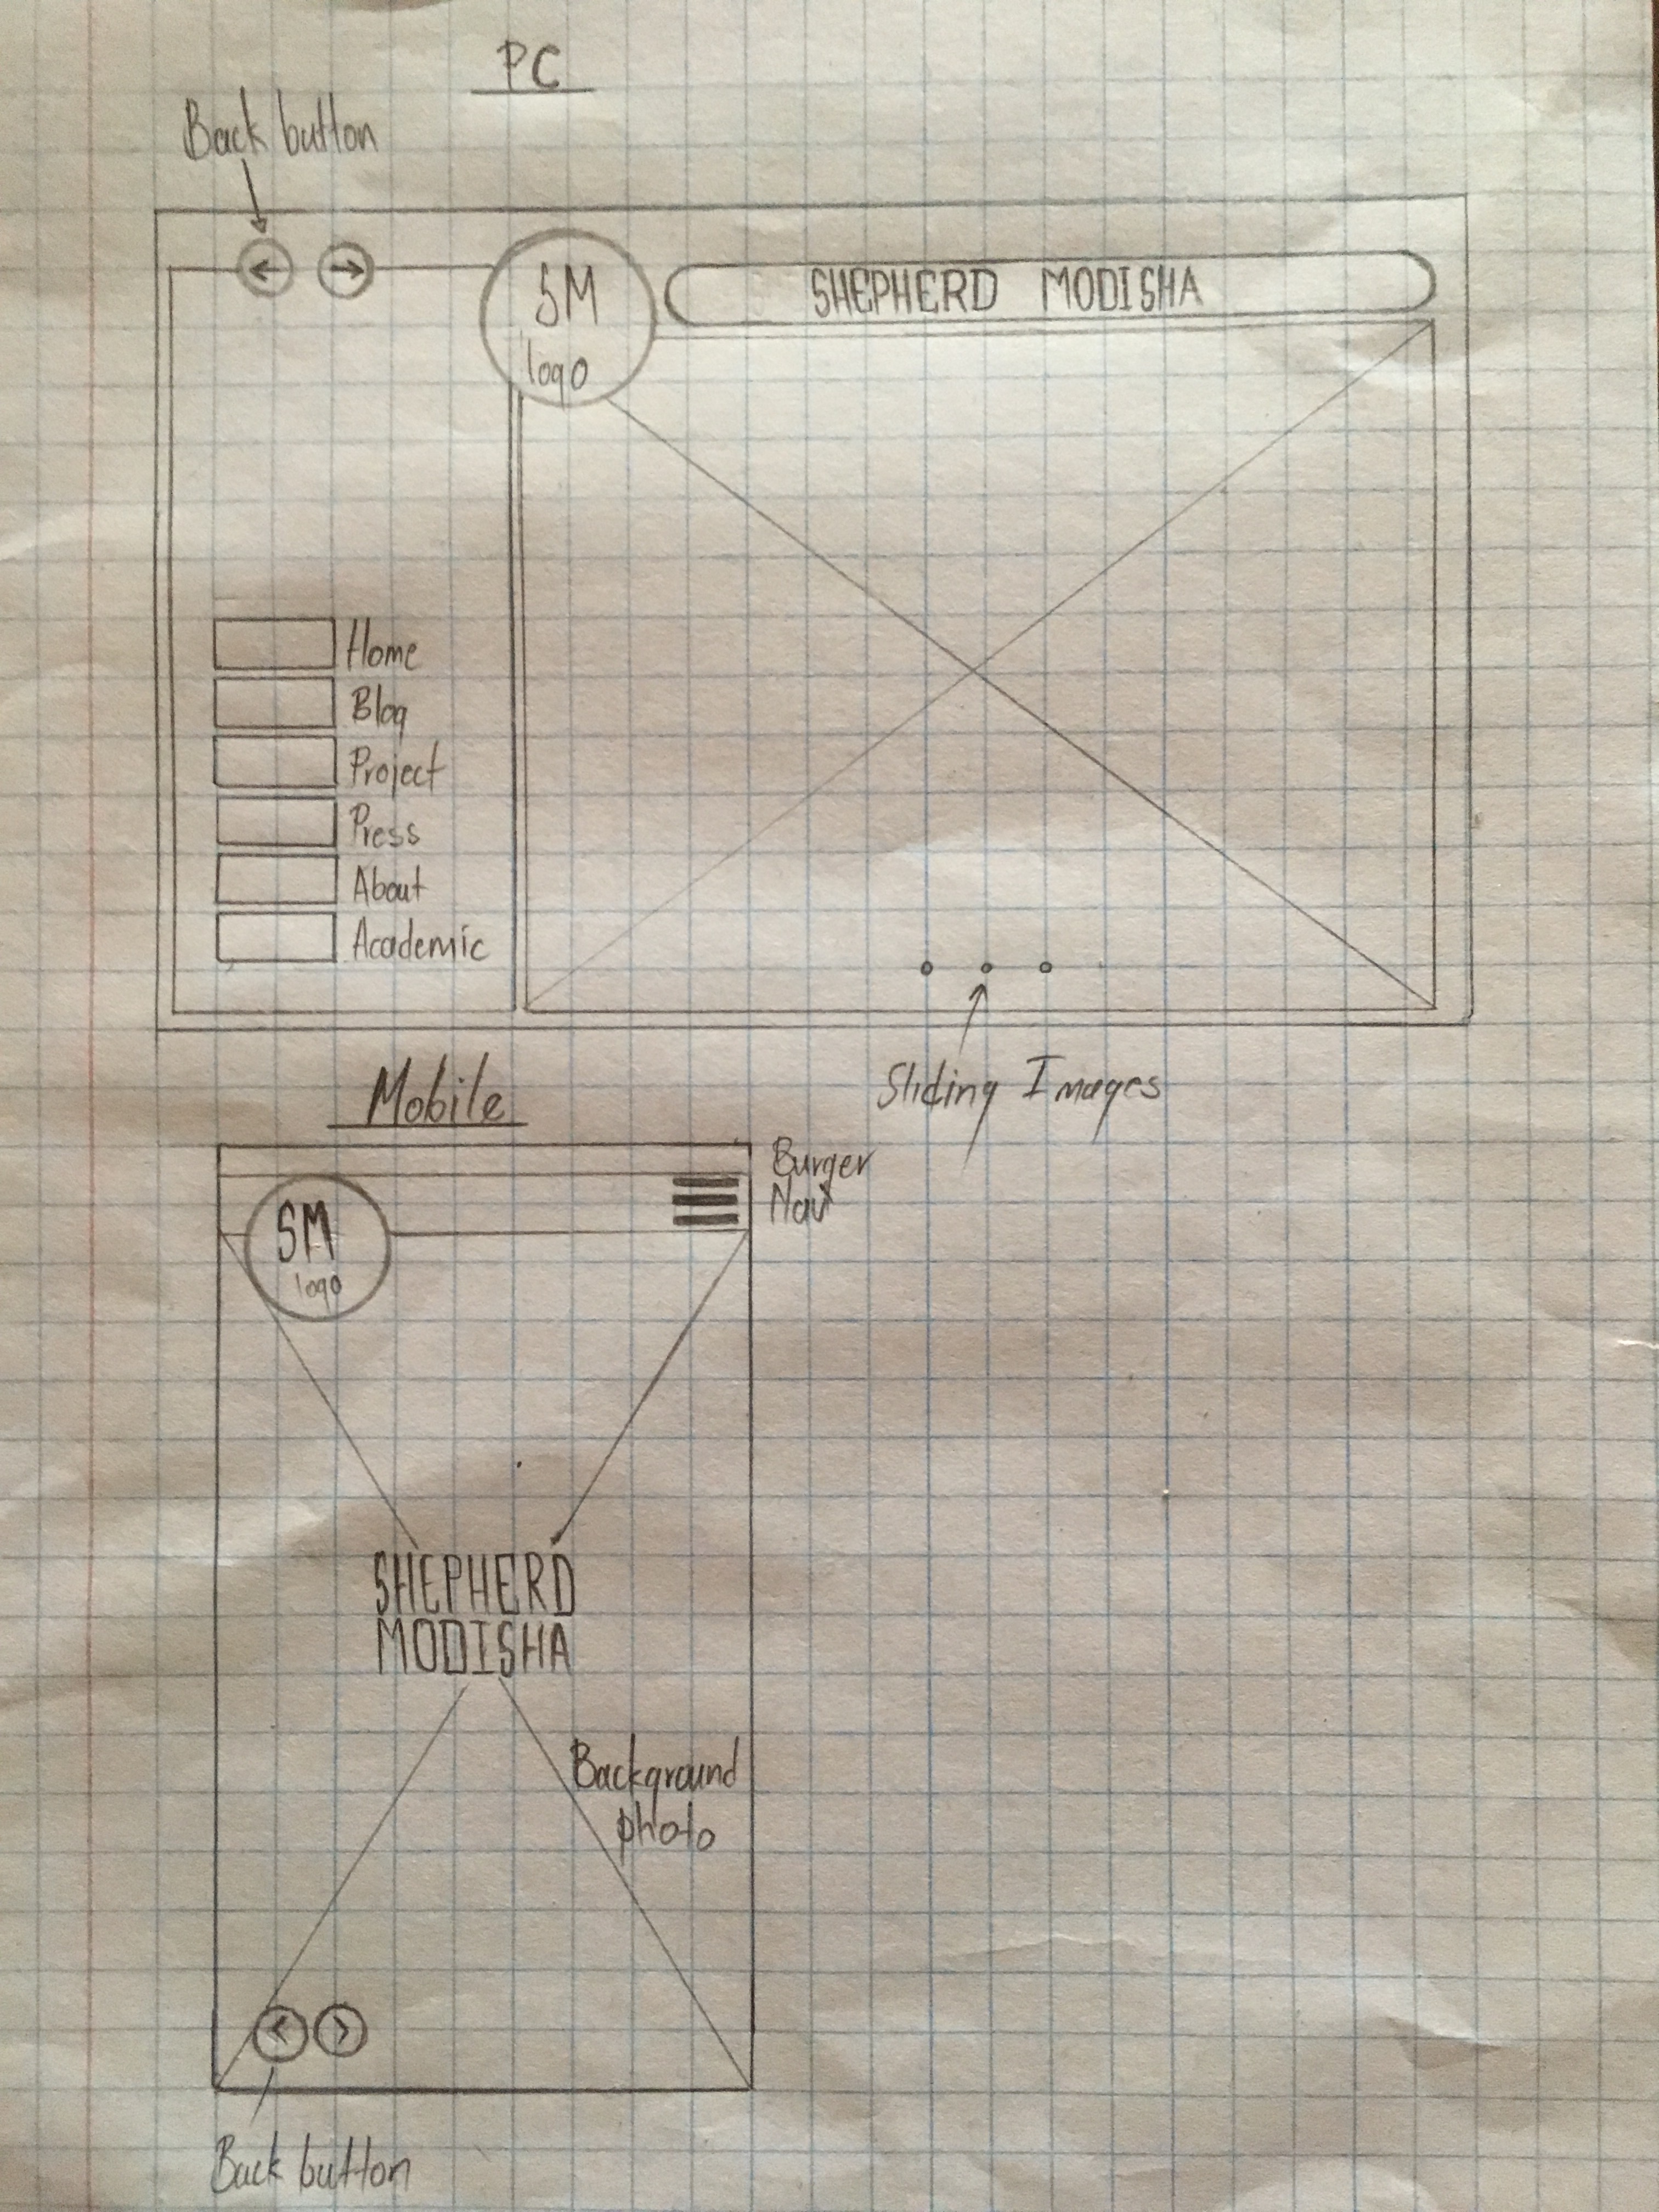 PC
Back button
SM
logo
SHEPHERD MODISHA
Home
Blog
Project
Press
About
Academic
Sliding Images
Mobile
Burger
Nav
SM
logo
SHEPHERD
MODISHA
Background
photo
Back button